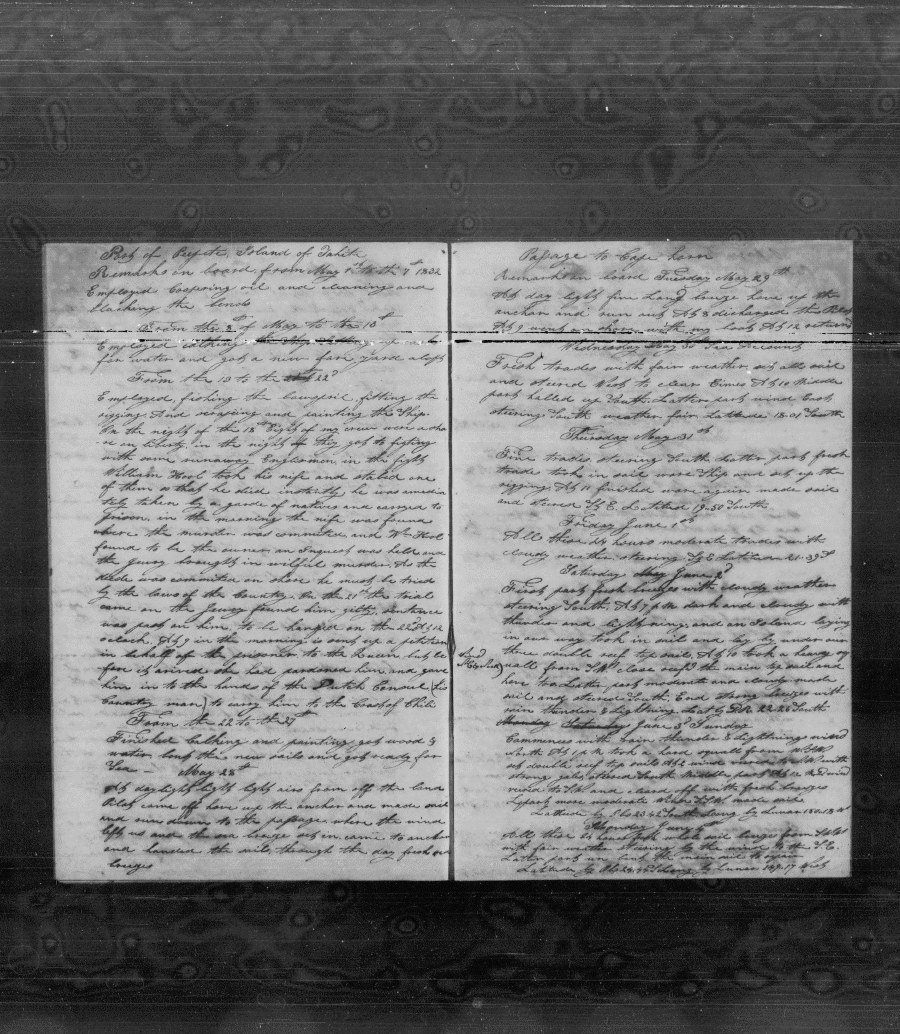 Port of Peepite, Island of Tahiti
Remarks on board from May 1st to the 8th 1832
Employed Coopering oil and cleaning and
blacking the bends
From the 8th of May to the 10th
Employed
for water and got a new fore yard aloft
From the 10 to the 22d
Employed, fishing the bowsprit, fitting the
rigging. And scraping and painting the Ship.
On the night of the 18th Eight of my crew were a sho
-re on liberty, in the night they got to fighting
with some runaway Englismen in the fight
William Hool took his nife and stabed one
of them so that he died instantly he was amedia
tely taken by a garde of natives and carried to
prison, in the morning the nife was found
where the murder was commited and Wm Hool
found to be the owner, an Inquest was held and
the Jurey brought in wilfull murder. As the
dede was commited on shore he must be tried
by the laws of the Country. On the 21st the trial
came on the Jurey found him gilty, sentence
was past on him, to be hanged on the 22d At 12
oclock, At 9 in the morning is sent up a petetion
in behalf of the prisoner to the Queen, but be
fore it arived she had pardoned him, and gave
him in to the hands of the Dutch Consul (his
Country man) to carry him to the Coast of Chili
From the 22 to the 27th
Finished calking and painting, got wood &
water, bent the new sails and got ready for
Sea - May 28th
At day light light airs from off the land
Pilot came off hove up the anchor and made sail
and run down to the passage when the wind
left us and the sea breeze set in, came to anchor
and handed the sails, through the day fresh
breezes
Pasage to Cape horn
Remarks on board Tuesday May 29th
At day light fine Land breeze hove up the
anchor and run out At 8 discharged the Pilot
At 9 went on shore with my boat At 12 returned
Wednesday May 30th Sea account
Fresh trades with fair weather, set all sail
and steered West to clear Eimeo At 10 Middle
part halled up South, Latter part wind East
steering South weather fair Latitude 18.01 South
Thursday May 31st
Fine trades steering South Latter part fresh
trades took in sail wore Ship and set up the
rigging At 10 finished wore again made sail
and steered S by E. Latitud 19.50 South
Friday June 1st
All these 24 hours moderate trades with
cloudy weather steering S by E Latitude 21.39 S
Saturday June 2d
First part fresh breezes with cloudy weather
steering South. At 7 P.M. dark and cloudy with
thunder and lightning, and an Island laying
in our way took in sail and lay by under our
three double reef top sails, At 10 took a heavy sq
uall from SW close reeft the main top sail and
hove to Latter part moderate and cloudy made
sail and steered South. End strong breezes with
rain thunder & lightning. Lat by DR 22.26 South
June 3d Sunday
Commences with rain thunder & Lightning wind
South At 1 P.M. took a hard squall from WSW
set double reef top sails At 2 wind vered to SW with
strong gales, steered South Middle part At 12 wind
vered to SW and cleard off with fresh breezes
Lr part more moderate wind SSW made sail
Latitude by Obs South Long by Lunar
Monday June 4th
All these 24 hours fresh whole sail breezes from
with fair weather steering by the wind to the S.E.
Latter part un bent the main sail to repair
Latitude by Obs Long by Lunar 147.17 West